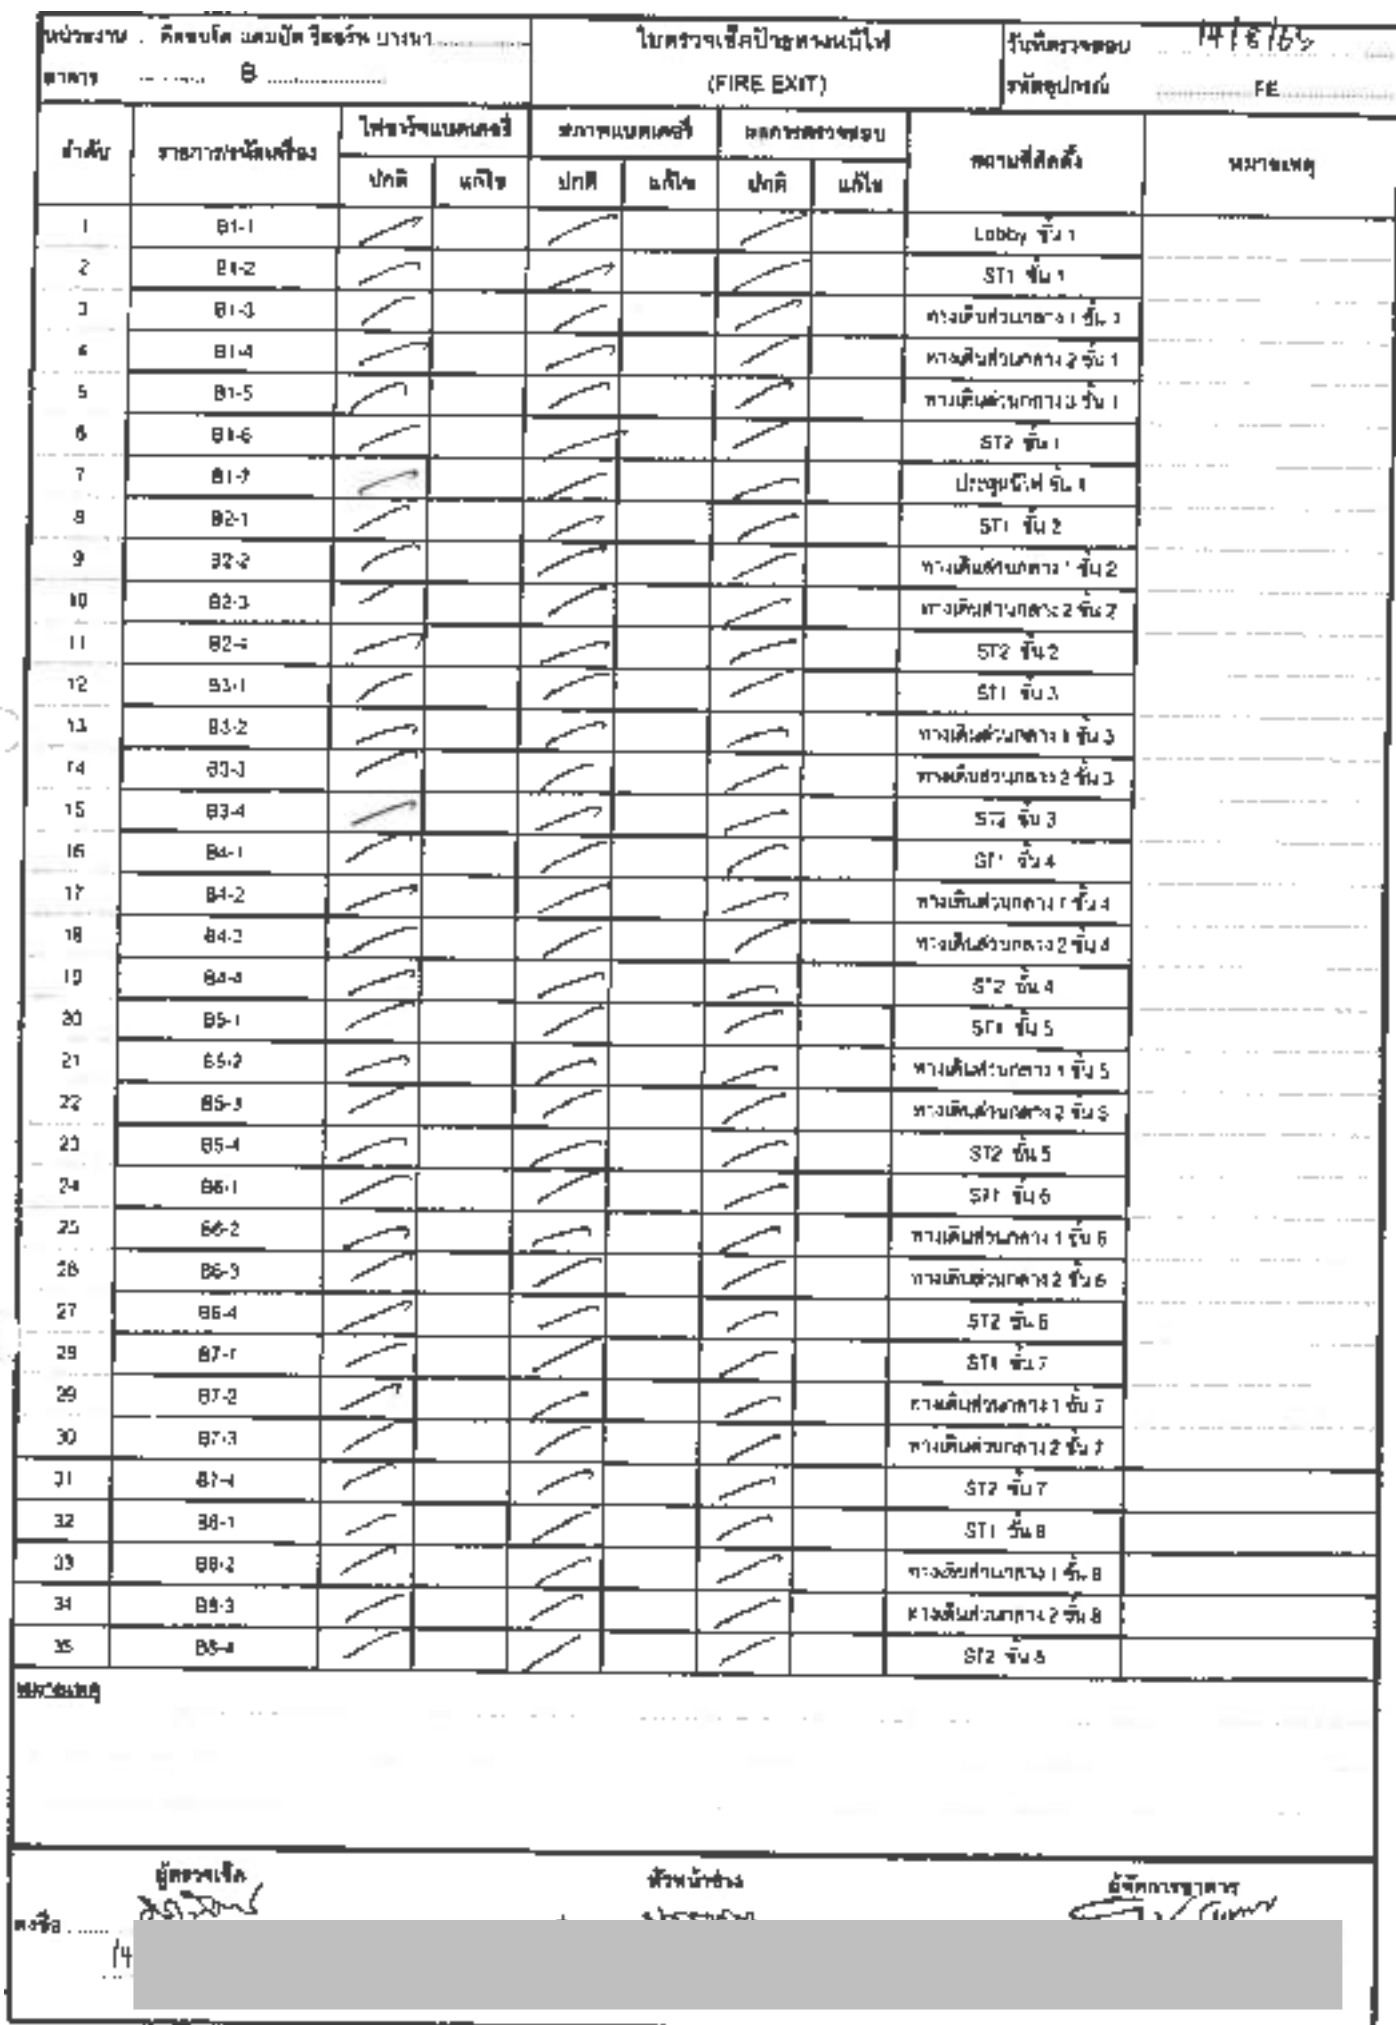 หน่วยงาน : ดีคอนโด แคมปัส รีสอร์ท บางนา ใบตรวจเช็คป้ายทางหนีไฟ วันที่ตรวจสอบ
อาคาร B (FIRE EXIT) รหัสอุปกรณ์ FE
ลำดับ รายการ/รหัสเครื่อง ไฟชาร์จแบตเตอรี่ สภาพแบตเตอรี่ ผลการตรวจสอบ สถานที่ติดตั้ง หมายเหตุ
ปกติ แก้ไข ปกติ แก้ไข ปกติ แก้ไข
1 B1-1 Lobby ชั้น 1
2 B1-2 ST1 ชั้น 1
3 B1-3 ทางเดินส่วนกลาง 1 ชั้น 1
4 B1-4 ทางเดินส่วนกลาง 2 ชั้น 1
5 B1-5 ทางเดินส่วนกลาง 3 ชั้น 1
6 B1-6 ST2 ชั้น 1
7 B1-7 ประตูหนีไฟ ชั้น 1
8 B2-1 ST1 ชั้น 2
9 B2-2 ทางเดินส่วนกลาง 1 ชั้น 2
10 B2-3 ทางเดินส่วนกลาง 2 ชั้น 2
11 B2-4 ST2 ชั้น 2
12 B3-1 ST1 ชั้น 3
13 B3-2 ทางเดินส่วนกลาง 1 ชั้น 3
14 B3-3 ทางเดินส่วนกลาง 2 ชั้น 3
15 B3-4 ST2 ชั้น 3
16 B4-1 ST1 ชั้น 4
17 B4-2 ทางเดินส่วนกลาง 1 ชั้น 4
18 B4-3 ทางเดินส่วนกลาง 2 ชั้น 4
19 B4-4 ST2 ชั้น 4
20 B5-1 ST1 ชั้น 5
21 B5-2 ทางเดินส่วนกลาง 1 ชั้น 5
22 B5-3 ทางเดินส่วนกลาง 2 ชั้น 5
23 B5-4 ST2 ชั้น 5
24 B6-1 ST1 ชั้น 6
25 B6-2 ทางเดินส่วนกลาง 1 ชั้น 6
26 B6-3 ทางเดินส่วนกลาง 2 ชั้น 6
27 B6-4 ST2 ชั้น 6
28 B7-1 ST1 ชั้น 7
29 B7-2 ทางเดินส่วนกลาง 1 ชั้น 7
30 B7-3 ทางเดินส่วนกลาง 2 ชั้น 7
31 B7-4 ST2 ชั้น 7
32 B8-1 ST1 ชั้น 8
33 B8-2 ทางเดินส่วนกลาง 1 ชั้น 8
34 B8-3 ทางเดินส่วนกลาง 2 ชั้น 8
35 B8-4 ST2 ชั้น 8
หมายเหตุ
ผู้ตรวจเช็ค หัวหน้าช่าง ผู้จัดการอาคาร
ลงชื่อ
14